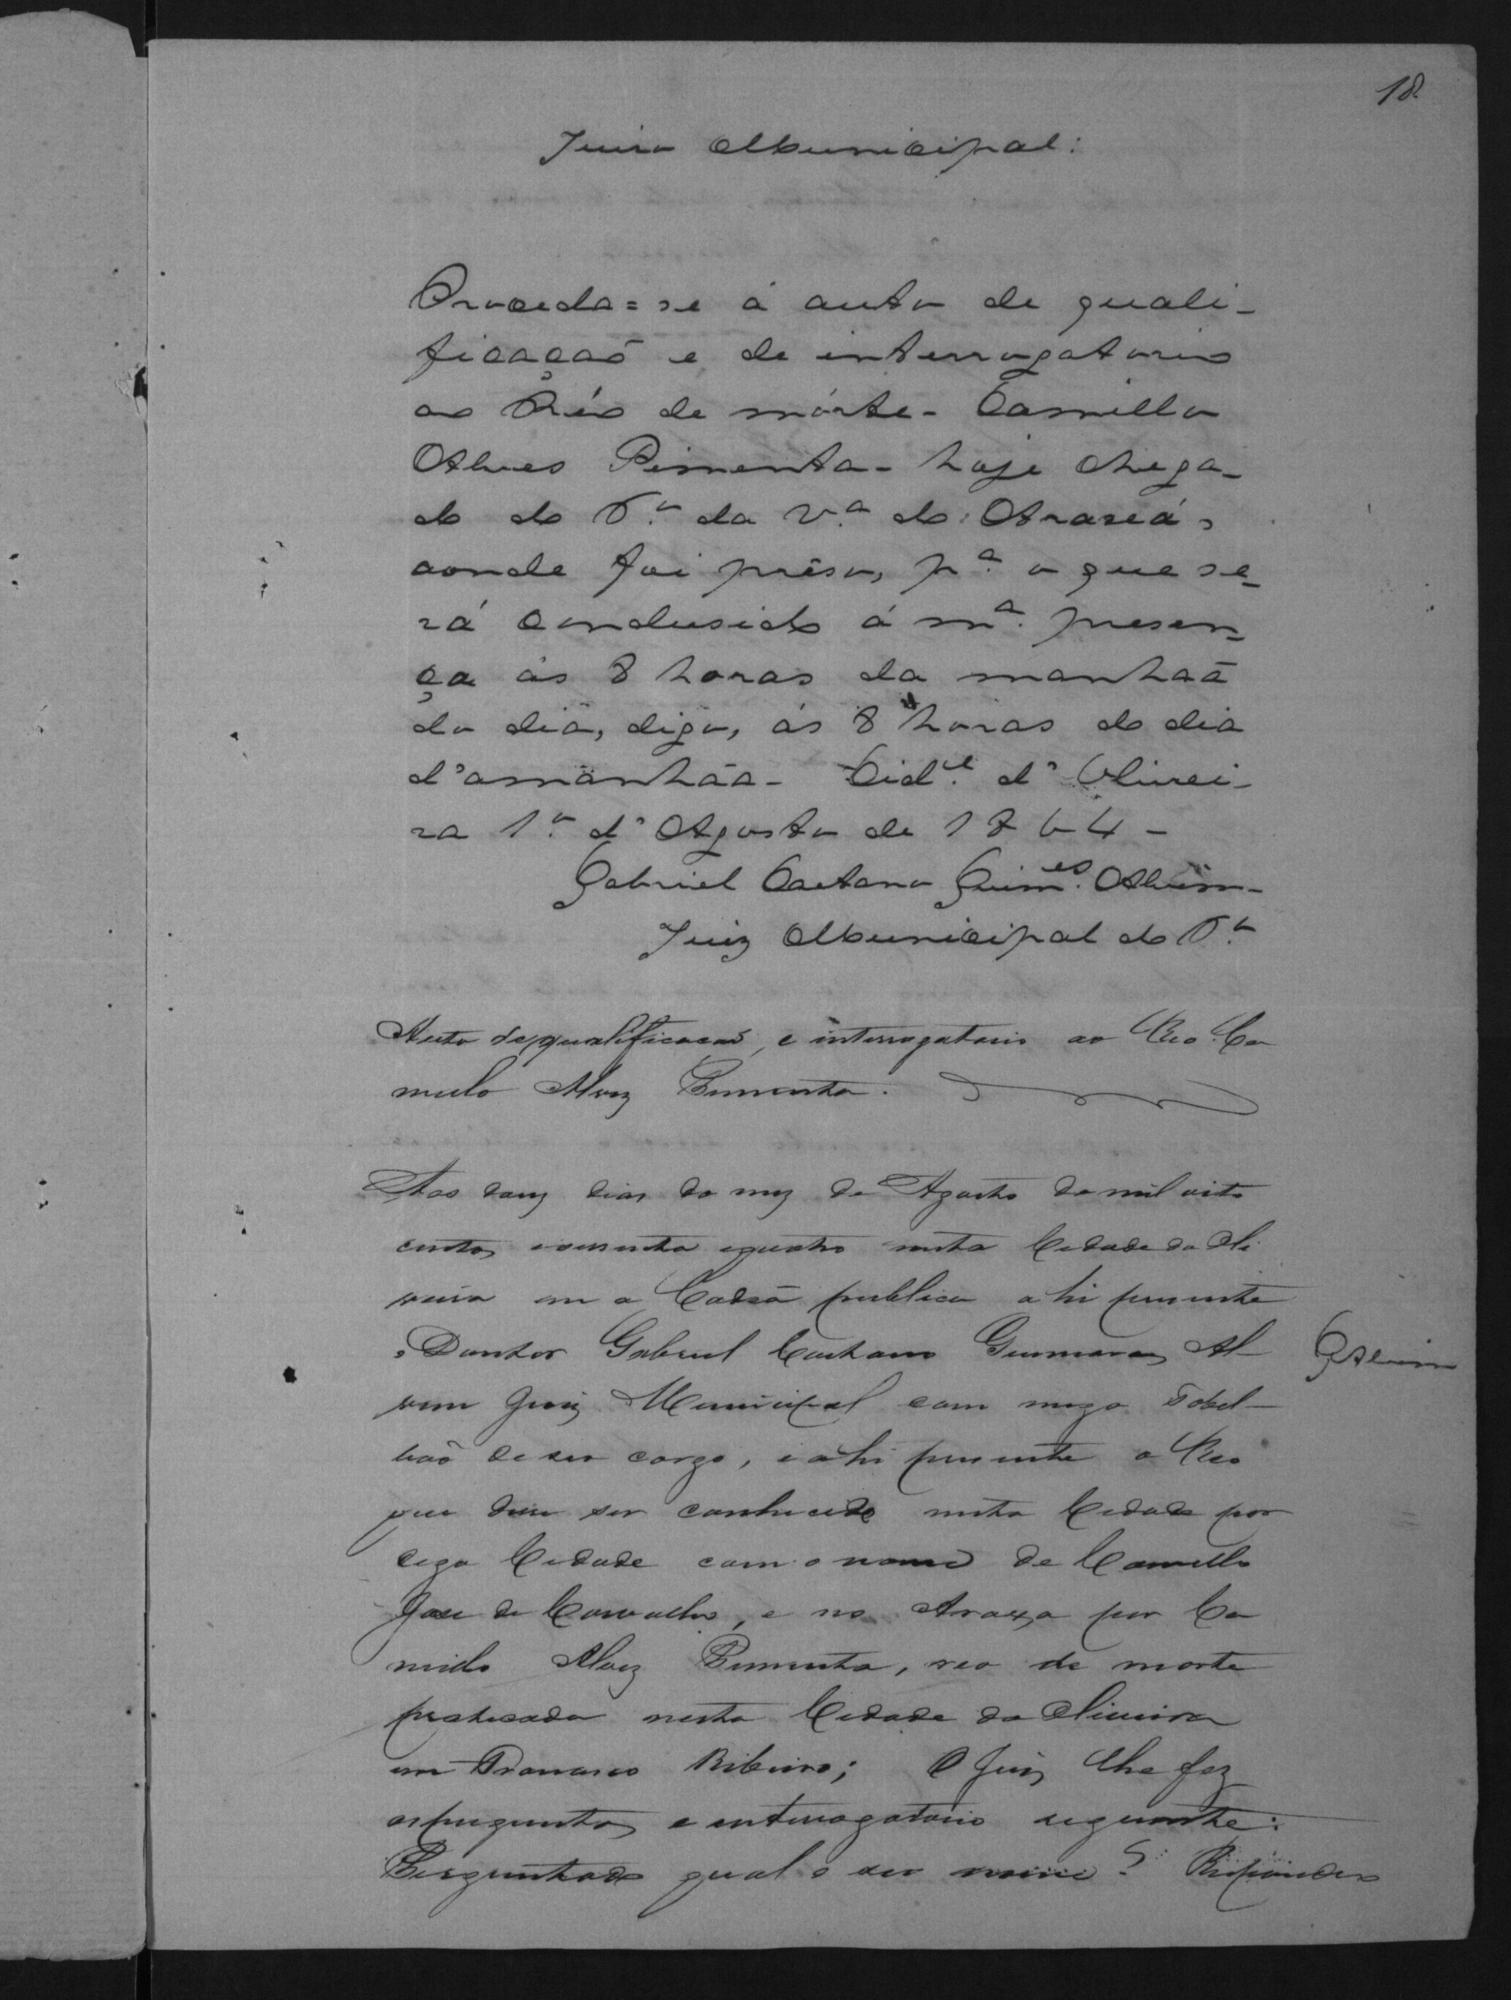 18
Juizo Municipal:
Proceda=se á auto de quali-
ficaçaõ e de interrogatorio
ao Réo de mórte - Camillo
Alves Pimenta - hoje chega-
do do T.º da V.ª do Araxá,
aonde foi prêso, p.ª o que se-
rá condusido á m.ª presen-
ça ás 8 horas da manhaã
do dia, digo, ás 8 horas do dia
d'amanhãa - Cid.e d'Olivei-
ra 1.º d'Agosto de 1864 -
Gabriel Caetano Guim.es Alvim -
Juiz Municipal do T.º
Auto de qualificacaõ, e interrogatorio ao Reo Ca
millo Alvez Pimenta.
Aos dous dias do mez de Agosto de mil oito
centos esessenta equatro nesta Cidade da Oli
veira em a Cadeã publica ahi presente
o Doutor Gabriel Caetano Guimaraes Al-
vim Juiz Municipal com migo Tabel-
liaõ de seo cargo, e ahi presente o Reo
que disse ser conhecido nesta Cidade por
digo Cidade com o nome de Camillo
Jose de Carvalho, e no Araxa por Ca
millo Alvez Pimenta, reo de morte
praticada nesta Cidade da Oliveira
em Francisco Ribeiro; O Juiz lhe fez
asperguntas e enterrogatorio seguinte:
Perguntado qual o seo nome? Respondeo
GAlvim